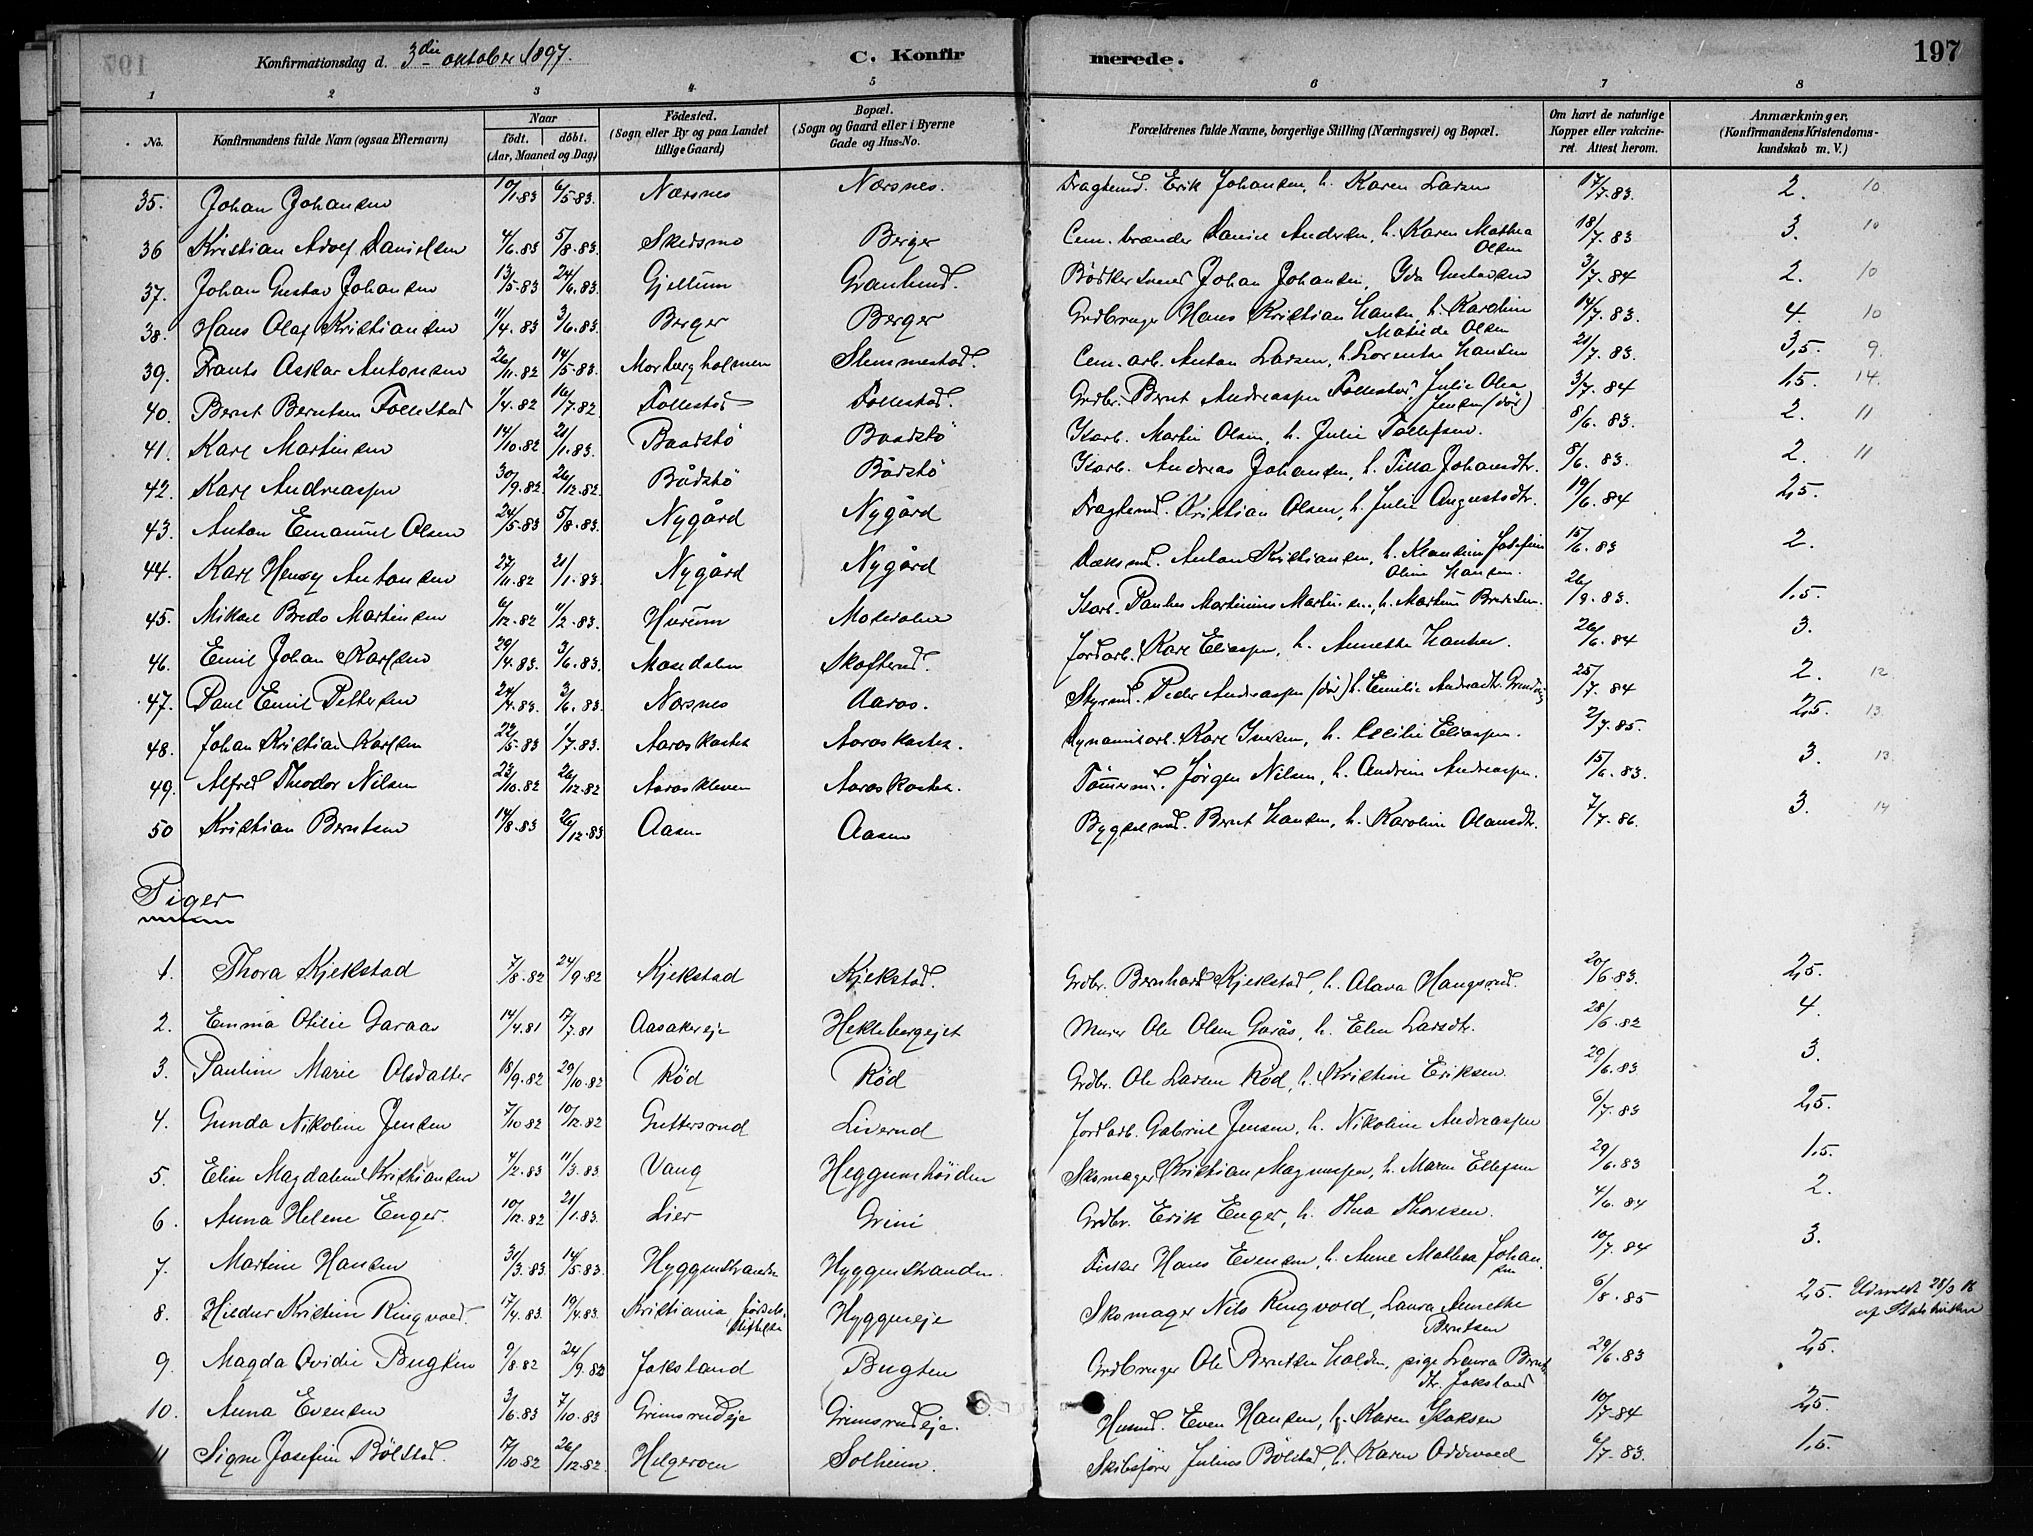 Konfirmationsdag d. 3die oktober 1897. C. Konfirmerede. 197
1 2 3 4 5 6 7 8
No. Konfirmandens fulde Navn (ogsaa Efternavn) Naar födt. döbt. (Aar, Maaned og Dag) Födested. (Sogn eller By og paa Landet tillige Gaard) Bopæl. (Sogn og Gaard eller i Byerne Gade og Hus-No. Forældrenes fulde Navne, borgerlige Stilling (Næringsvei) og Bopæl. Om havt de naturlige Kopper eller vakcineret. Attest herom. Anmærkninger. (Konfirmandens Kristendomskundskab m. V.)
35. Johan Johansen 10/1.83 6/5.83 Nærsnes Nærsnes. Fragtemd. Erik Johansen, h. Karen Larsen 17/7.83. 2. 10
36 Kristian Adolf Danielsen 4/6.83 5/8.83. Skedsmo Berger Cem. brænder Daniel Andersen, h. Karen Mathea Olsen 18/7.83 3. 10
37. Johan Gustav Johansen 13/5.83 24/6.83. Gjellum Granlund. Bödkersvend Johan Johansen, Ida Gustavsen 3/7.84 2. 10
38. Hans Olaf Kristiansen 11/4.83 3/6.83. Berger Berger Grdbruger Hans Kristian Hansen, h. Karoline Matilde Olsen 14/7.83. 4. 10
39. Frants Oskar Antonsen 26/11.82 14/5.83. Morberg holmen Slemmestad. Cem. arb. Anton Larsen, h. Lorentse Hansen 21/7.83. 3,5. 9.
40. Bernt Berntsen Follestad 1/4.82 16/7.82 Follestad Follestad. Grdbr. Bernt Andreassen Follestad, Julie Olea Jensen (död) 3/7.84 1,5. 14.
41. Karl Martinsen 14/10.82 21/1.83. Baadstö Baadstö Isarb. Martin Olsen, h. Julie Tollefsen. 8/6.83. 2. 11
42. Karl Andreassen 30/9.82. 26/12.82. Bådstö Bådstö Isarb. Andreas Johansen, h. Tilla Johansdtr. 8/6.83. 2. 11
43. Anton Emanuel Olsen 24/5.83 5/8.83. Nygård Nygård Fragtemd. Kristian Olsen, h. Julie Augustsdtr. 19/6.84 2,5.
44. Karl Henry Antonsen 27/11.82 21/1.83. Nygård Nygård Dæksmd. Anton Kristiansen, h. Klausine Josefine Oline Hansen. 15/6.83 2.
45. Mikael Bredo Martinsen 6/12.82 11/2.83. Hurum Mosedalen Isarb. Paulus Martinius Martinsen, h. Martine Bredesen. 26/9.83. 1,5.
46. Emil Johan Karlsen 29/4.83. 3/6.83. Mosedalen Skofterud. Jordarb. Karl Eliassen, h. Annette Hansen. 26/6.84 3.
47. Paul Emil Pettersen 24/4.83. 3/6.83. Nærsnes Aaros. Styrmd. Peder Andreassen (död) h. Emilie Andreasdtr. 25/7.84 2. 12
48. Johan Kristian Karlsen 22/5.83 1/7.83. Aaroskasten Aaroskasten. Dynamitarb. Karl Iversen, h. Cecilie Eliassen. 2/7.85. 2,5. 13.
49. Alfred Theodor Nilsen 23/10.82 26/12.82 Aaroskleven Aaroskasten. Tömmermd. Jörgen Nilsen, h. Andrine Andreassen. 15/6.83. 3. 13.
50 Kristian Berntsen 14/8.83 26/12.83 Aasen Aasen Bygselmd. Bernt Hansen, h. Karoline Olausdtr. 7/7.86. 3. 14
Piger
1. Thora Kjekstad 7/8.82 24/9.82 Kjekstad Kjekstad. Grdbr. Bernhard Kjekstad, h. Olava Haugsrud. 20/6.83. 2,5.
2. Emma Otilie Garaas 14/4.81 17/7.81 Aasakereje Hekkebergejet Murer Ole Olsen Garås, h. Elen Larsdtr. 28/6.82 4.
3. Pauline Marie Olsdatter 18/9.82 29/10.82 Röd Röd Grdbr. Ole Larsen Röd, h. Kristine Eriksen. 29/6.83. 3.
4. Gunda Nikoline Jensen 7/10.82 10/12.82 Guttersrud Liverud Jordarb. Gabriel Jensen, h. Nikoline Andreassen 6/7.83 2,5.
5. Elise Magdalene Kristiansen 4/2.83 11/3.83. Vang Heggumhöiden Skomager Kristian Magnussen, h. Maren Ellefsen 29/6.83 1,5.
6. Anna Helene Enger. 10/12.82 21/1.83. Lier Grini Grdbr. Erik Enger, h. Thea Thoresen. 4/6.84 2.
7. Martine Hansen 31/3.83. 14/5.83. Hyggenstranden Hyggenstranden. Fisker Hans Evensen, h. Anne Mathea Johansen 10/7.84 3.
8. Hildur Kristine Ringvold. 17/4.83. 19/4.83. Kristiania födselsstiftelse Hyggeneje Skomager Nils Ringvold, Laura Annette Berntsen 6/8.85 2,5. Udmeldt 28/3 16 af Statskirken
9. Magda Ovidie Bugten 9/8.82 24/9.82 Jaksland Bugten Grdbruger Ole Berntsen Holden, pige Laura Berntsdtr. Jaksland 29/6.83 2,5.
10. Anna Evensen 3/6.83 7/10.83 Grimsrudeje Grimsrudeje. Husmd. Even Hansen, h. Karen Isaksen 10/7.84 2,5.
11 Signe Josefine Bölstad. 17/10.82 26/12.82. Helgeroen Solheim. Skibsförer Julius Bölstad, h. Karen Oddvold 6/7.83. 1,5.